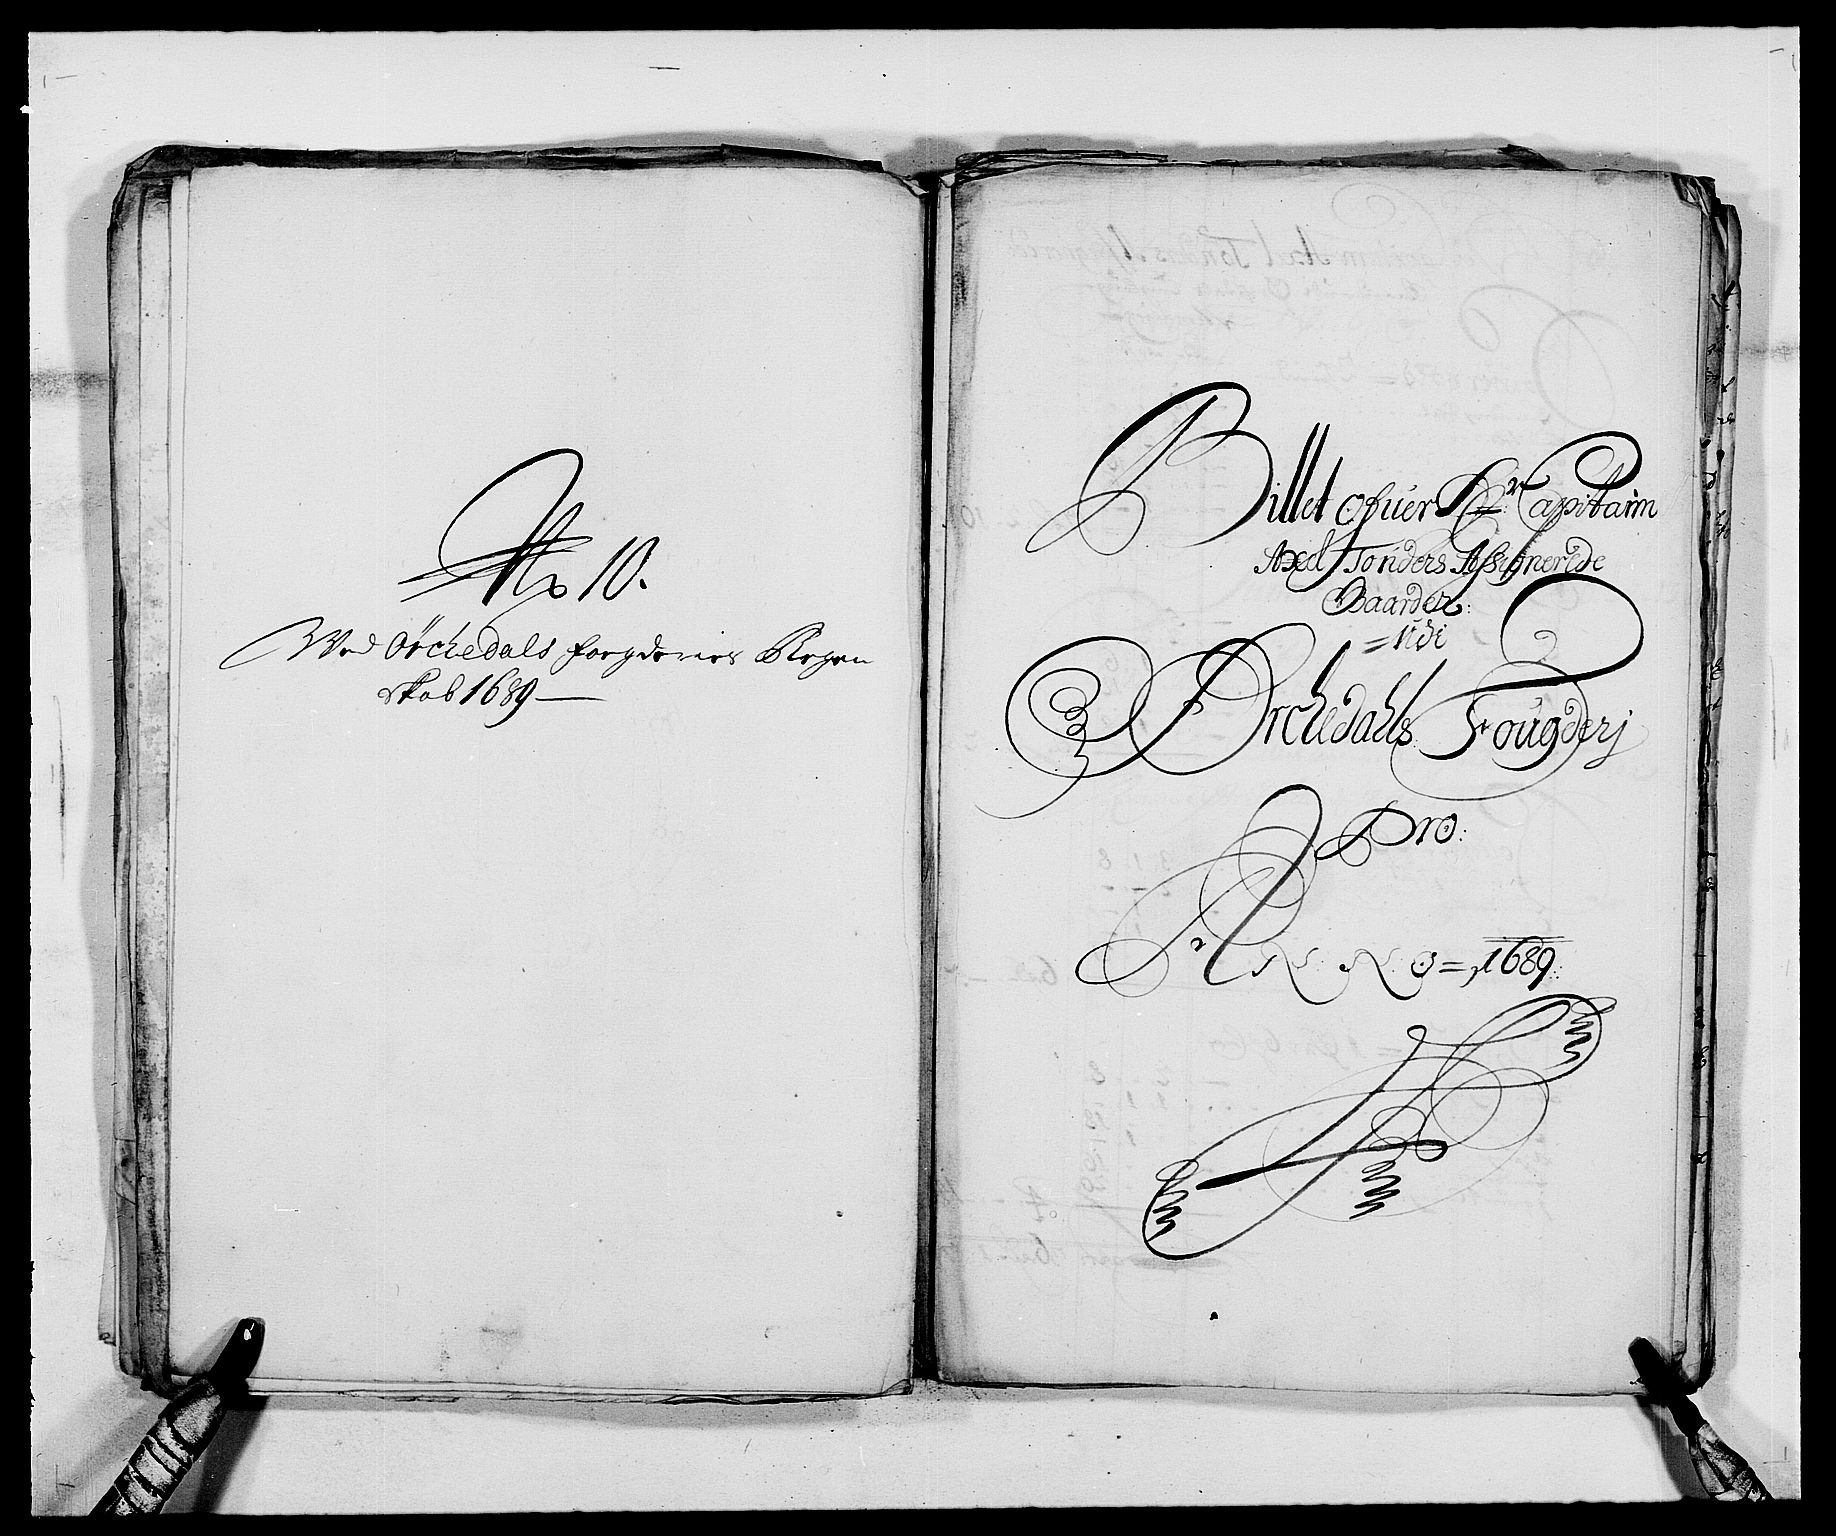 No 10.
Wed Örchedals fougderies Regen
skab 1689
Billet ofuer Hr: Capitaim
Axel Tonders Assignerede
Gaarder:
= Udi
Orchedahls Fougderj
Pro:
ANNO = 1689: